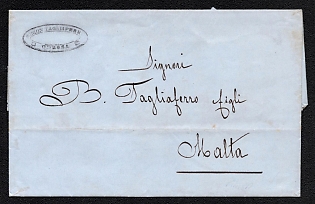 Signori
B. Tagliaferro figli
Malta